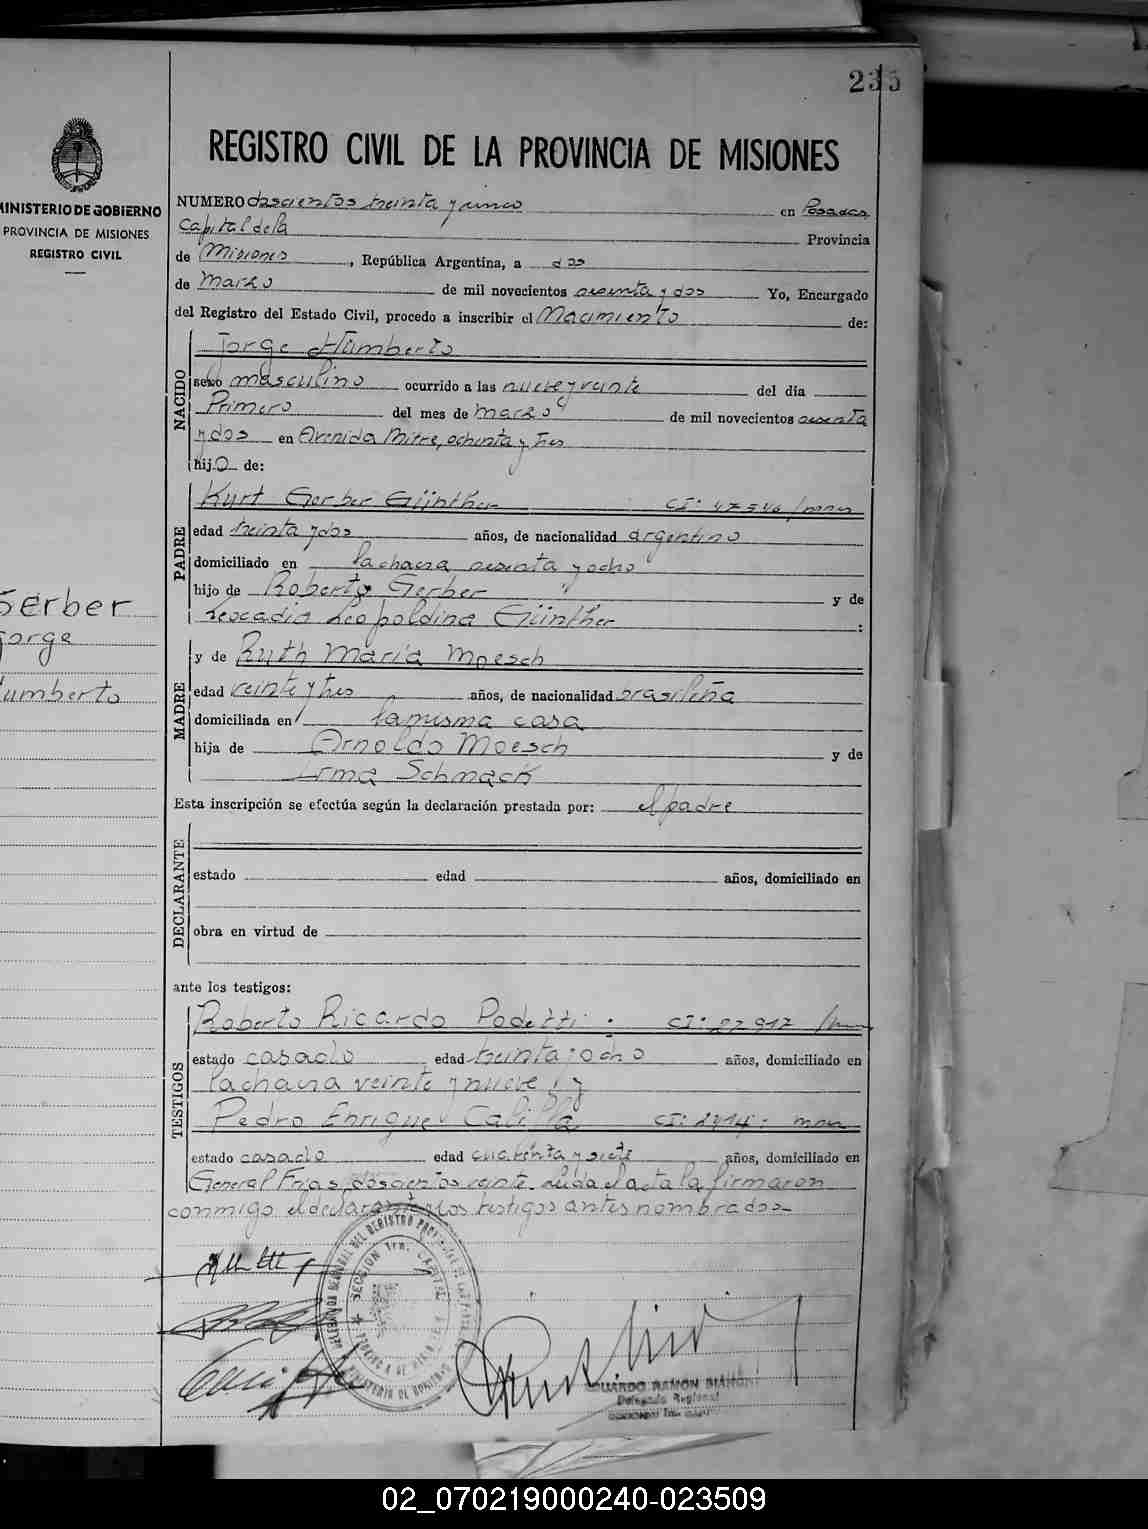 235
MINISTERIO DE GOBIERNO
PROVINCIA DE MISIONES
REGISTRO CIVIL
Gerber
Jorge
Humberto
REGISTRO CIVIL DE LA PROVINCIA DE MISIONES
NUMERO doscientos treinta y cinco en Posadas
Capital de la Provincia
de Misiones, República Argentina, a dos
de Marzo de mil novecientos sesenta y dos Yo, Encargado
del Registro del Estado Civil, procedo a inscribir el Nacimiento de:
NACIDO
Jorge Humberto
sexo masculino ocurrido a las nueve y veinte del día
Primero del mes de Marzo de mil novecientos sesenta
y dos en Avenida Mitre, ochenta y tres
hijo de:
PADRE
Kurt Gerber Günther CI: 47546/
edad treinta y dos años, de nacionalidad argentino
domiciliado en la chacra sesenta y ocho
hijo de Roberto Gerber y de
Leocadia Leopoldina Günther :
MADRE
y de Ruth Maria Moesch
edad veinte y tres años, de nacionalidad brasileña
domiciliada en la misma casa
hija de Arnoldo Moesch y de
Irma Schmack
Esta inscripción se efectúa según la declaración prestada por: el padre
DECLARANTE
estado edad años, domiciliado en
obra en virtud de
ante los testigos:
TESTIGOS
Roberto Ricardo Podetti: CI: 27917 /
estado casado edad treinta y ocho años, domiciliado en
la chacra veinte y nueve, y
Pedro Enrique CI: 2414:
estado casado edad cuarenta y siete años, domiciliado en
General Frias doscientos veinte. Leida el acta la firmaron
conmigo el declarante y los testigos antes nombrados—
SECCION 1ra. CAPITAL
EDUARDO RAMON
Delegado Regional
02_070219000240-023509